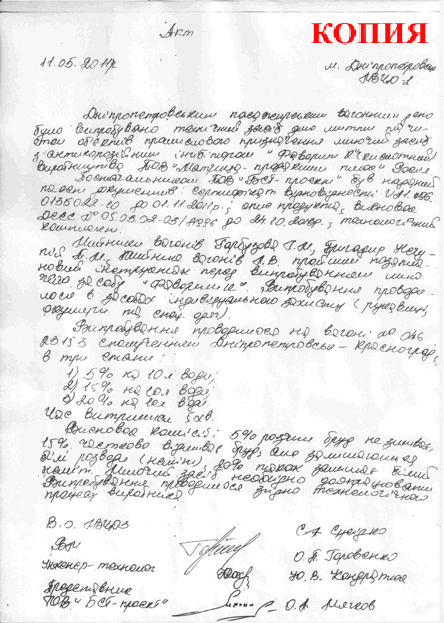 Акт
КОПИЯ
11.05.2011р.
м. Дніпропетровськ
ЛВЧД 1
Дніпропетровським пасажирським вагонним депо
було випробувано технічний засіб для миття
об'єктів промислового призначення миючий засіб
з антикорозійним інгібітором "Фаворит К" кислотний
виробництва ТОВ
Постачальником ТОВ "БСТ-проект" був наданий
пакет документів: сертифікат відповідності
0135022-10 до 01.11.2011р.; опис продукта, висновок
СЕСС № 05.03.02-03/ до 21.10.2012р, технологічний
регламент.
Мийники вагонів Гарбузова Т.М., бригадир
мийник вагонів Л.В. пройшли позапла-
новий інструктаж перед випробуванням мию-
чого засобу "Фаворит К". Випробування проводи-
лося в засобах індивідуального захисту (рукавиці,
окуляри та спец. одяг).
Випробування проводилося на вагоні № 046
23153 сполученням Дніпропетровськ - Красноград,
в три етапи:
1) 5% на 10л води;
2) 15% на 10л води;
3) 20% на 10л води.
Час витримки 5хв.
Висновок комісії: 5% розчин бруд не змиває,
15% частково відмиває бруд, але залишаються
білі розводи (наліт), 20% також залишає білий
наліт. Миючий засіб необхідно доопрацювати.
Випробування проводилося згідно технологічного
процесу виробника.
В.О. ЛВЧДЗ
О.П. Горовенко
Інженер-технолог
Ю.В. Кондратюк
Представник
ТОВ "БСТ-проект"
О.А. Мячков